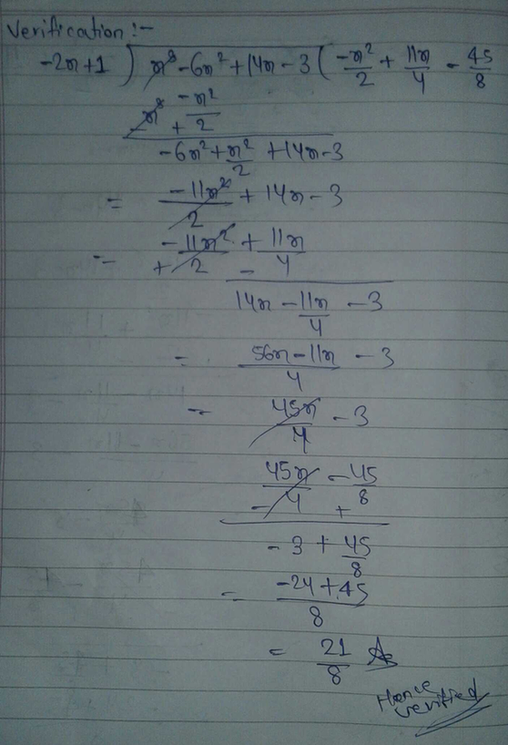 Verification :-
-2x+1 ) x³ - 6x² + 14x - 3 ( -x²/2 + 11x/4 - 45/8
x³ - x²/2
- +
-6x² + x²/2 + 14x - 3
= -11x²/2 + 14x - 3
= -11x²/2 + 11x/4
+ -
14x - 11x/4 - 3
= 56x - 11x/4 - 3
= 45x/4 - 3
45x/4 - 45/8
- +
-3 + 45/8
= -24 + 45/8
= 21/8 A
Hence
verified